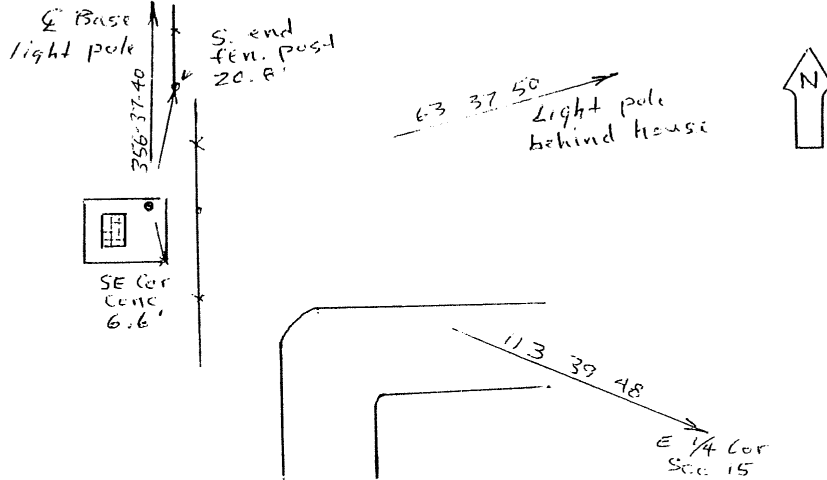 ℄ Base
light pole
356-37-40
S. end
fen. post
20.8'
63 37 50
Light pole
behind house
N
SE Cor
Conc
6.6'
113 39 48
E 1/4 Cor
Sec 15